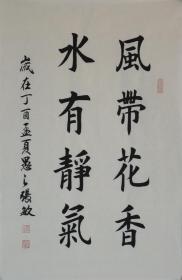 風帶花香
水有靜氣
歲在丁酉孟夏愚之張敏